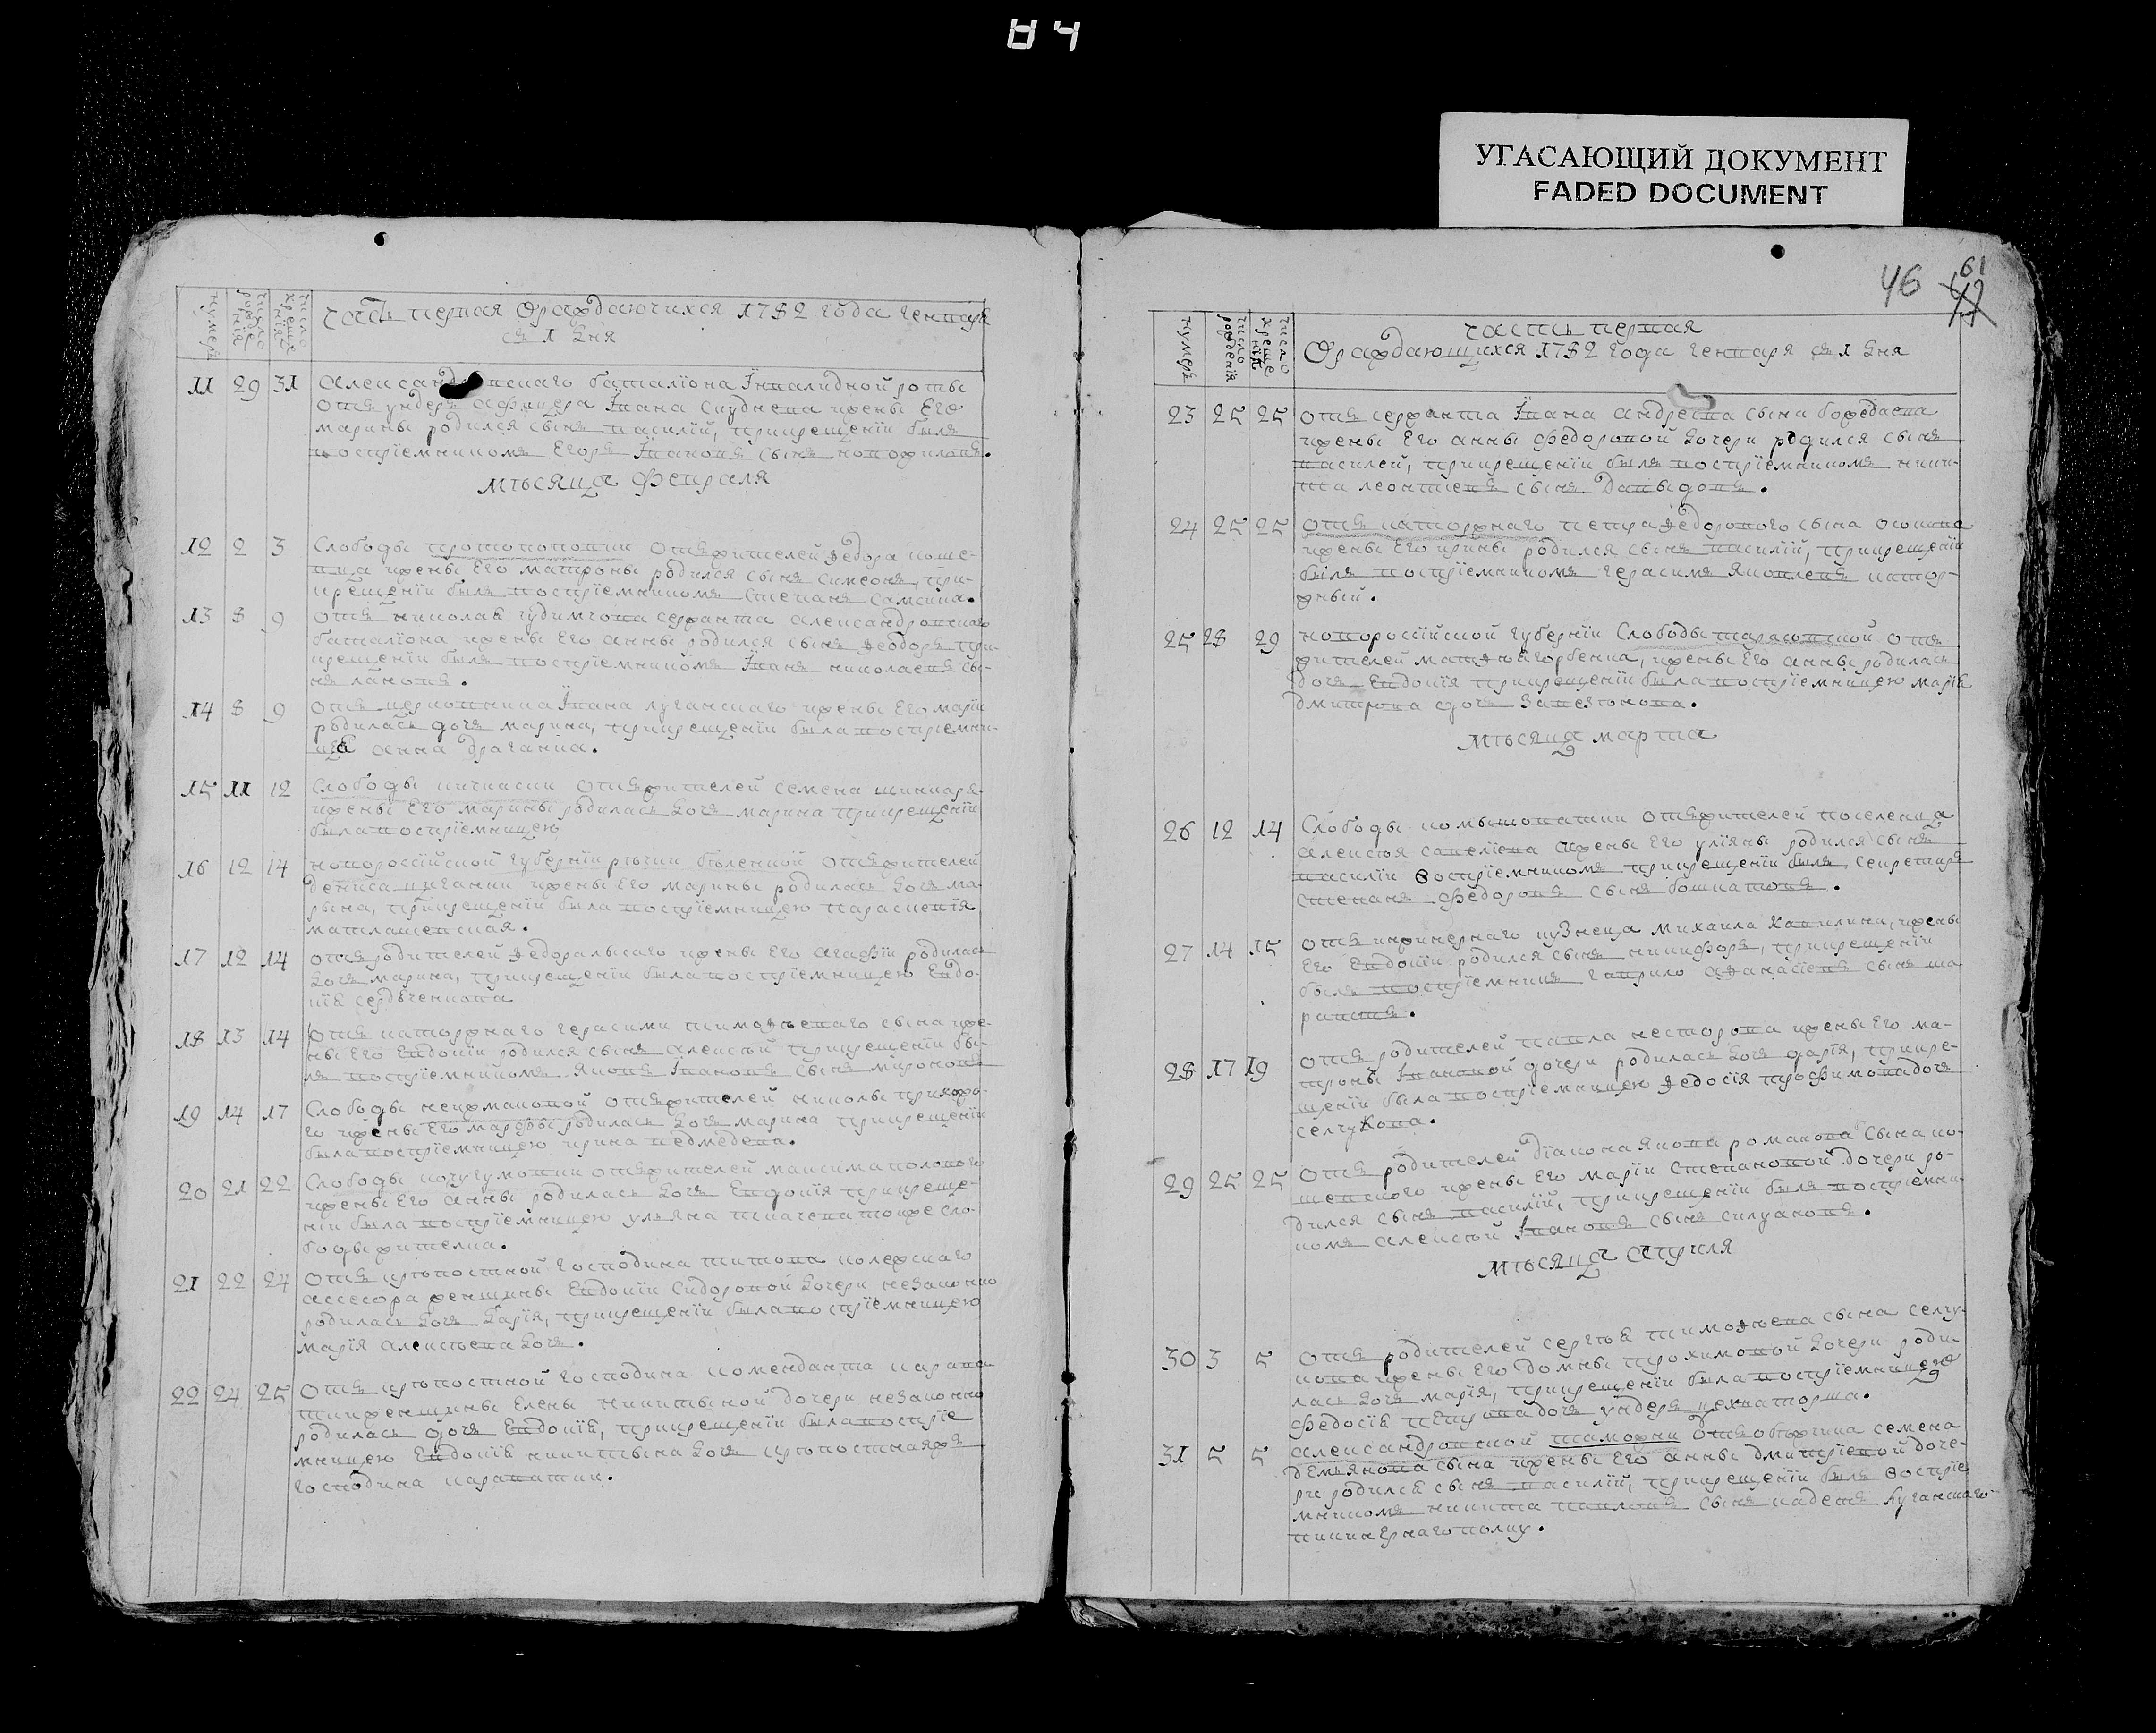 84
УГАСАЮЩИЙ ДОКУМЕНТ
FADED DOCUMENT
нумеръ
число рождения
число крещения
часть первая О раждаючихся 1782 года генваря
съ 1 дня
11 29 31 Александровскаго баталїона їнвалидной роты
отъ ундеръ афицера Їавана Скуднева жены Его
марины родился сынъ василїй, прикрещенїи былъ
воспрїемникомъ Егоръ Їванов сынъ новофиловъ.
мѣсяца февраля
12 2 3 Слободы протопоповки отъ жителей Ѳедора коше-
вца жены Его матроны родился сынъ симеонъ, при-
крещенїи былъ воспрїемникомъ степанъ самсика.
13 8 9 отъ николая гудимчова сержанта александровскаго
баталїона жены Его анны родился сынъ Ѳеодоръ при-
крещенїи былъ воспрїемникомъ Їванъ николаевъ сы-
нъ лановъ.
14 8 9 отъ церковника Їавана луганскаго жены Его марїи
родилась дочъ марина, прикрещенїи была воспрїемни-
ца анна драганка.
15 11 12 Слободы кичкаски отъ жителей семена шинкаря
жены Его марины родилась дочъ марина прикрещенїи
была воспрїемницею
16 12 14 новороссїйской губернїи рѣчки бѣленкой отъ жителей
дениса циганки жены Его марины родилась дочъ ма-
рына, прикрещенїи была воспрїемницею парасковїя
матлашевская.
17 12 14 отъ родителей Ѳедора лысаго жены Его агафїи родилась
дочъ марина, прикрещенїи была воспрїемницею Евдо-
кїя сердъченкова
18 13 14 отъ каторжнаго герасима тимоѳѣеваго сына же-
ны Его Евдокїи родился сынъ алексѣй прикрещенїи бы-
лъ воспрїемникомъ яковъ Їванов сынъ мироновъ
19 14 17 Слободы неижмаковой отъ жителей николы прихода-
го жены Его марфы родилась дочъ марина прикрещенїи
была воспрїемницею ирина ведмедева.
20 21 22 Слободы кочугумовки отъ жителей максима половаго
жены Его анны родилась дочъ Евдокїя прикреще-
нїи была воспрїемницею ульяна ткачева тоиже сло-
боды жителка.
21 22 24 отъ крѣпостной господина титова колежскаго
ассесора женщины Евдокїи Сидоровой дочери незаконно
родилась дочъ дарїя, прикрещенїи была воспрїемницею
марїя алексѣева дочъ.
22 24 25 отъ крѣпостной господина коменданта карава-
тки женщины Елены никитыной дочери незаконно
родилась дочъ Евдокїя, прикрещенїи была воспрїе
мницею Евдокїя никитына дочъ крѣпостнаяжъ
господина караватки.
46
61
нумеръ
число рожденїя
число крещенїя
часть первая
О раждающихся 1782 года генваря съ 1 дня
23 25 25 отъ сержанта Їавана андреева сына бождаева
жены Его анны федоровой дочери родился сынъ
василей, прикрещенїи былъ воспрїемникомъ ники-
та леонтиевъ сынъ давыдовъ.
24 25 25 отъ каторжнаго петра Ѳедоровога сына осокина
жены Его ирины родился сынъ василїй, прикрещенїи
былъ воспрїемникомъ герасимъ яковлевъ катор-
жный.
25 28 29 новороссїйской губернїи Слободы тарасовской отъ
жителей матѳѣя горбенка, жены Его анны родилась
дочъ Евдокїя прикрещенїи была воспрїемницею марїя
дмитрова дочъ
мѣсяца марта
26 12 14 Слободы комышоватки отъ жителей поселенца
алексѣя савелїева жены Его улїяны родился сынъ
василїи воспрїемникомъ прикрещенїи былъ секретаръ
степанъ федоровъ сынъ башматовъ.
27 14 15 отъ инжинернаго кузнеца михаила Кавилина, жены
Его Евдокїи родился сынъ никифоръ, прикрещенїи
былъ воспрїемникъ гаврило аѳанасїевъ сынъ ша
раптъ.
28 17 19 отъ родителей павла несторова жены Его ма-
троны Їавановой дочери родилась дочъ дарїя, прикре-
щенїи была воспрїемницею Ѳедосїя трофимова дочъ
селчуКова.
29 25 25 отъ родителей дїакона якова романова сына ко-
шевского жены Его марїи степановой дочери ро-
дился сынъ василїй, прикрещенїи былъ воспрїемни-
комъ алексѣй Їванов сынъ силуановъ.
мѣсяца априля
30 3 5 отъ родителей сергѣя тимоѳѣева сына селчу-
кова жены Его домны трохимовой дочери роди-
лась дочъ марїя, прикрещенїи была воспрїемницею
федосїя петрова дочъ ундеръ
31 5 5 александровской таможни отъ обьжчика семена
демьянова сына жены Его анны дмитрїевой доче-
ри родился сынъ василїй, прикрещенїи былъ воспрїе
мникомъ никита павловъ сынъ кадетъ луганскаго
пикинернаго полку.